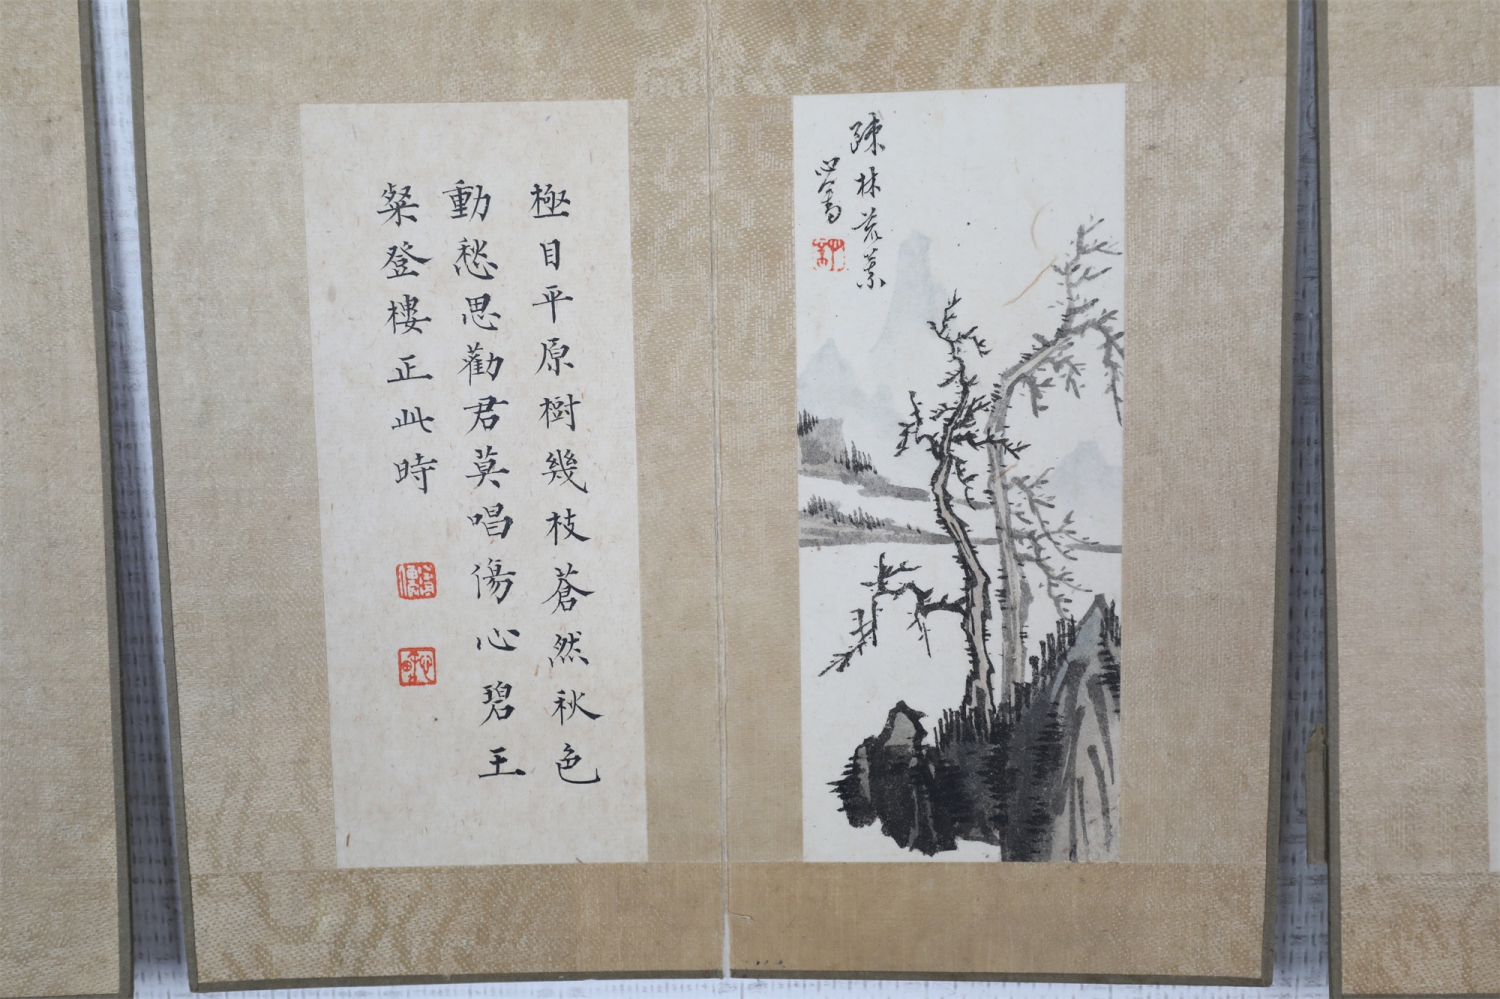 疎林荒景
心畬
極目平原樹幾枝蒼然秋色
動愁思勸君莫唱傷心碧王
粲登樓正此時